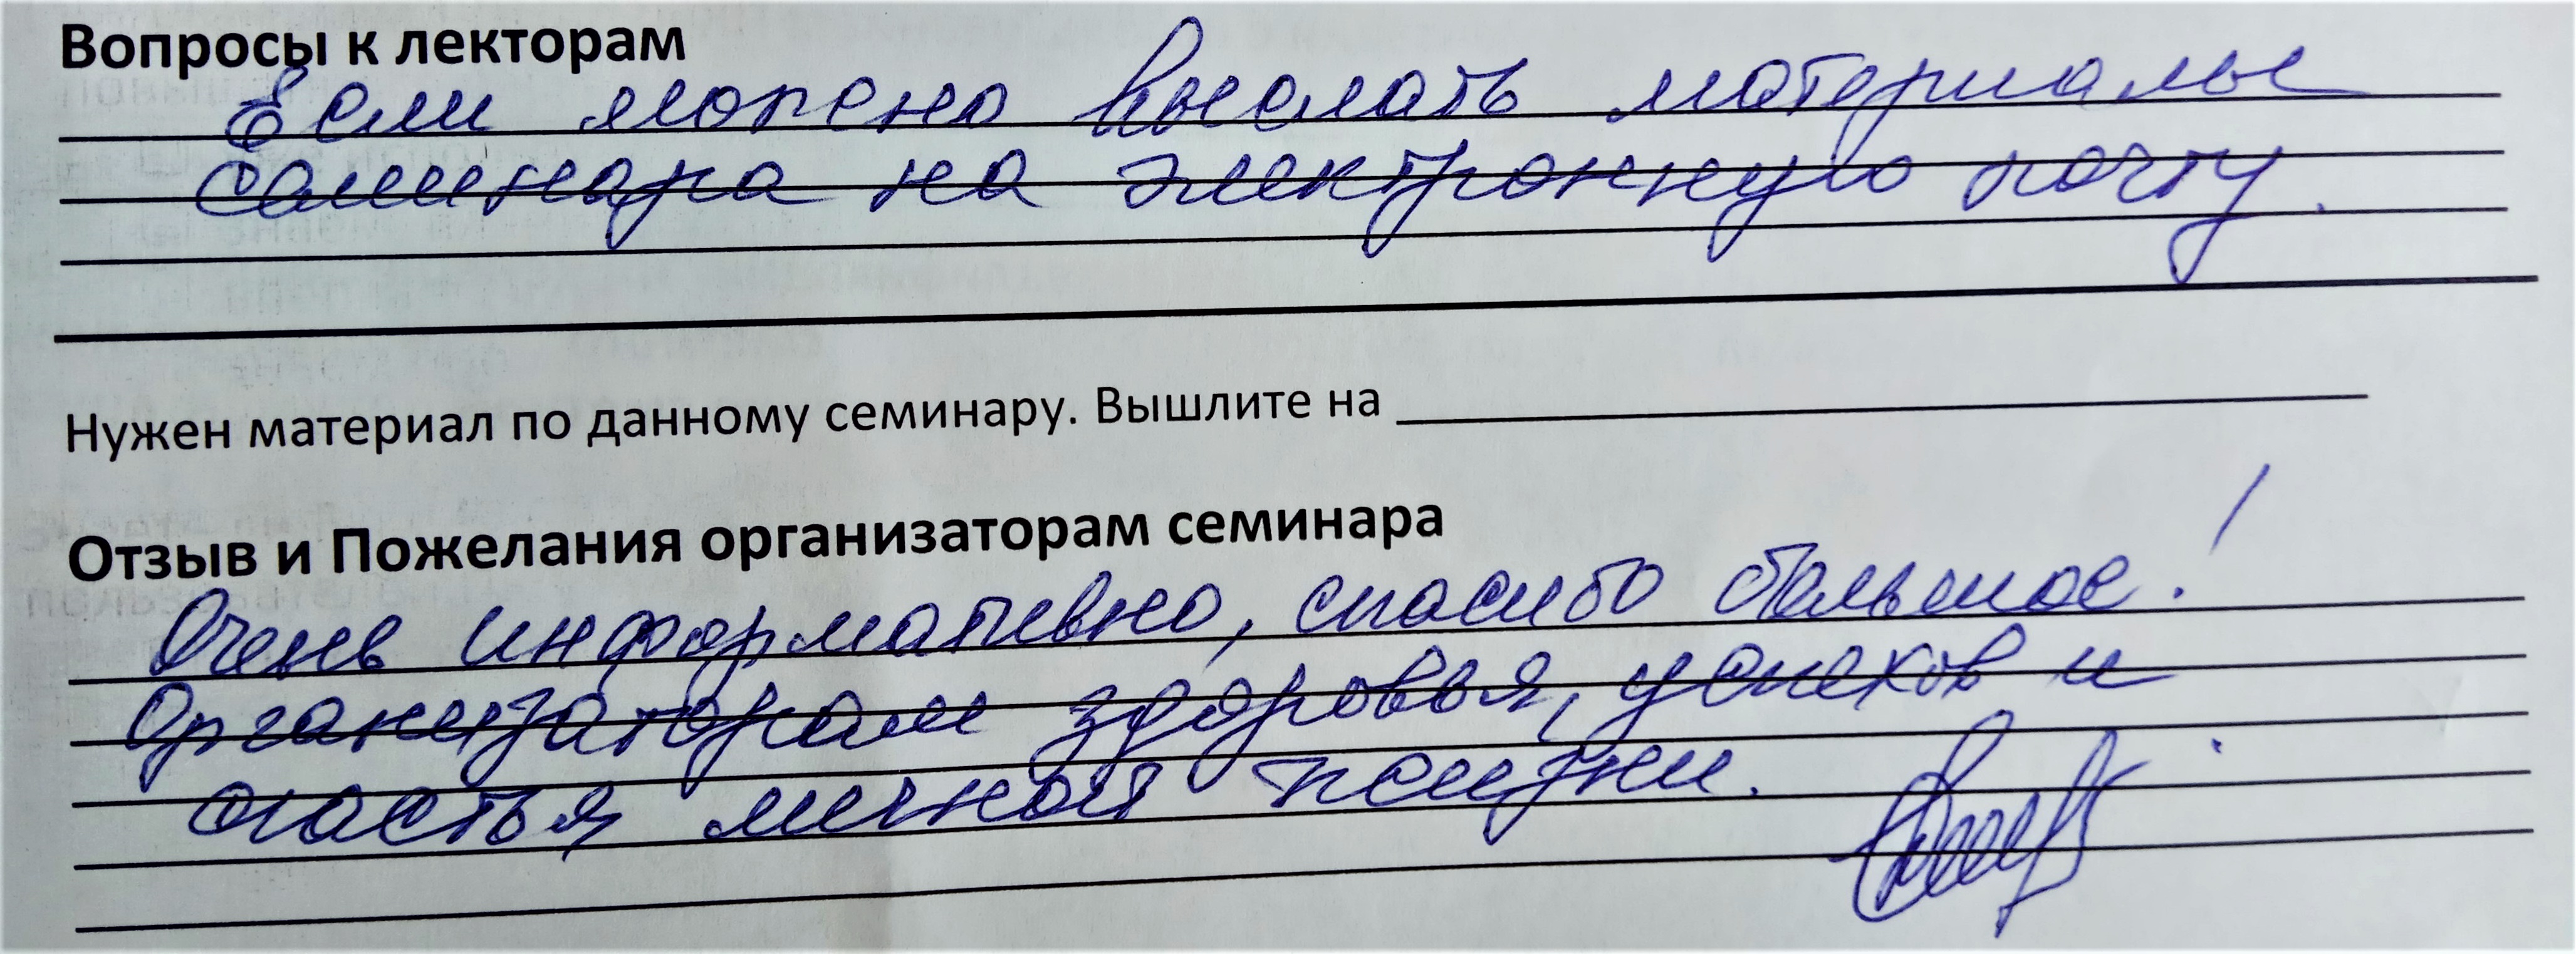 Вопросы к лекторам
Если можно выслать материалы
семинара на электронную почту.
Нужен материал по данному семинару. Вышлите на
Отзыв и Пожелания организаторам семинара
Очень информативно, спасибо большое!
Организаторам здоровья, успехов и
счастья личной жизни.